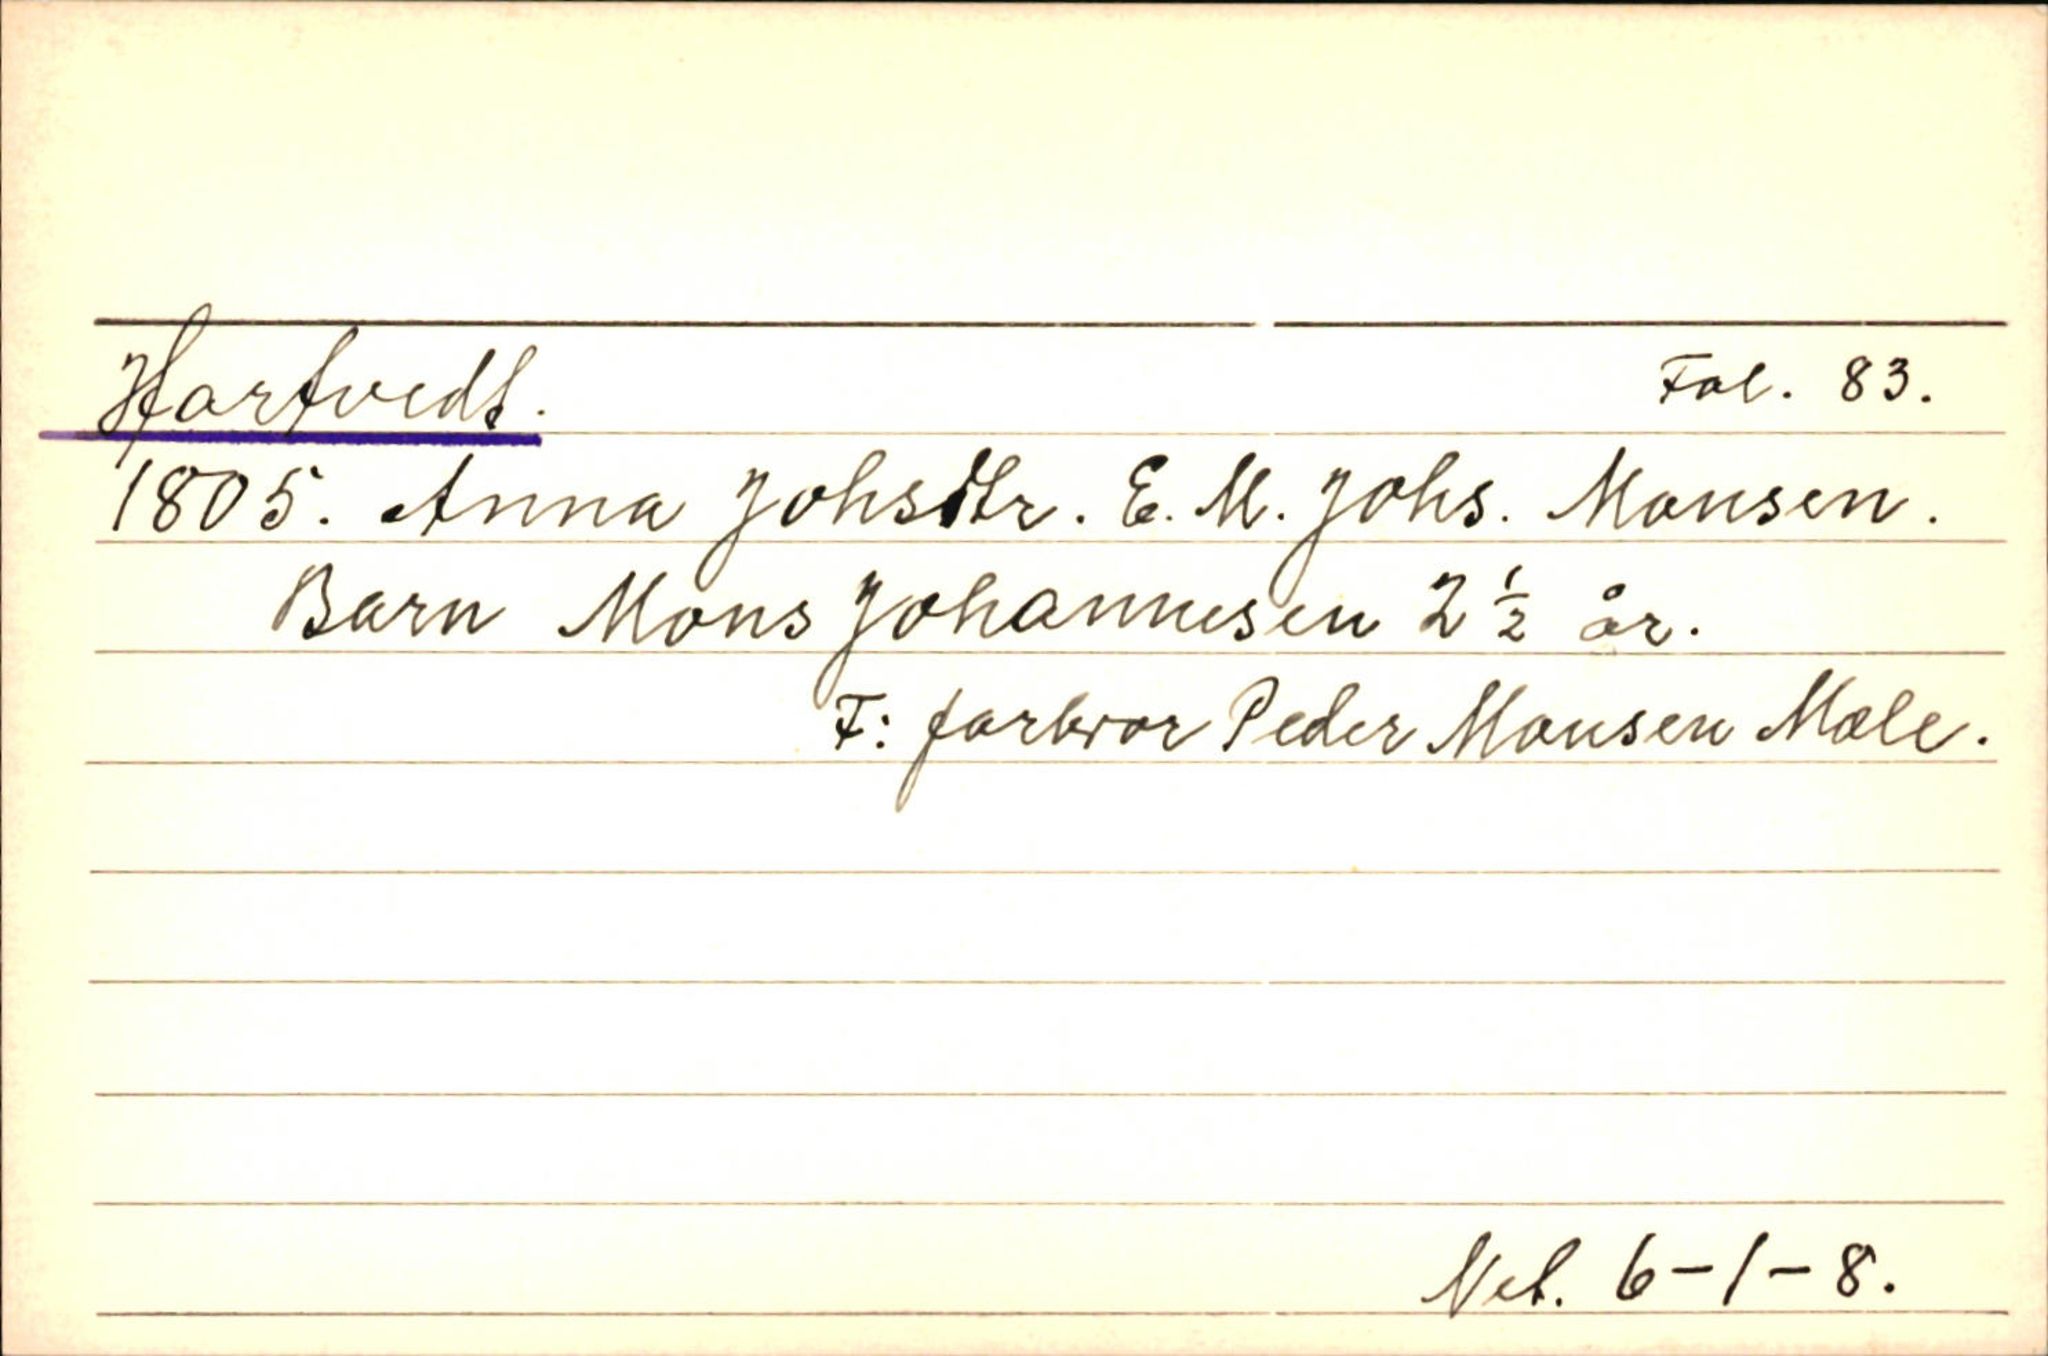 Hartvedt. Fol. 83.
1805. Anna Johsdtr. E. M. Johs. Monsen.
Barn Mons Johannesen 2 1/2 år.
F: farbror Peder Monsen Mæle.
Net. 6-1-8.